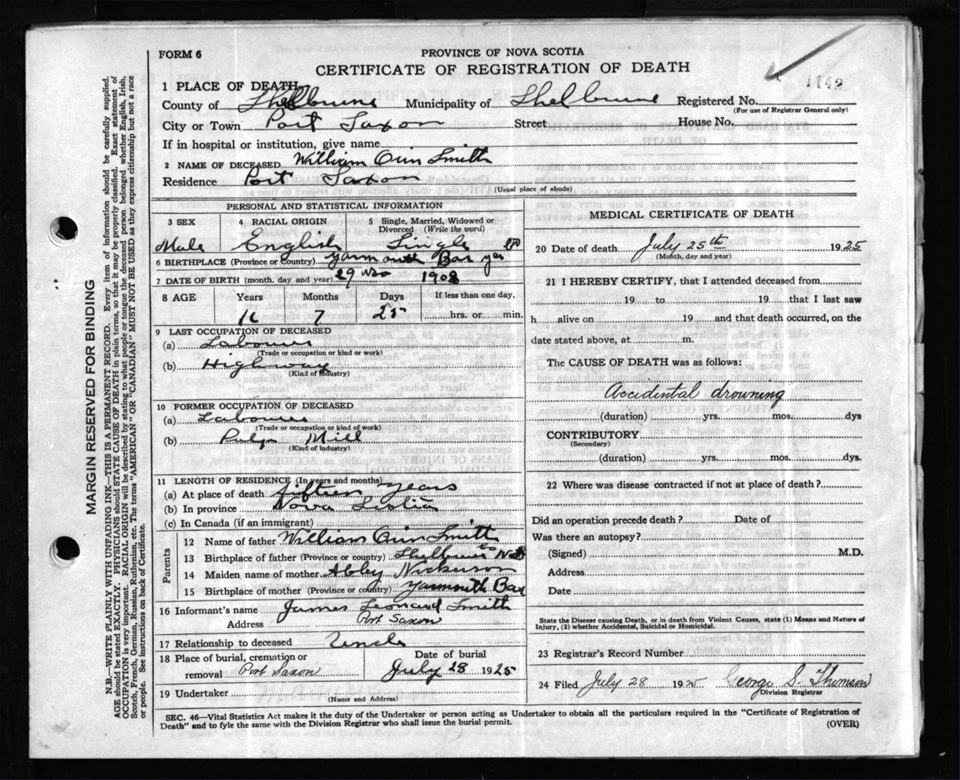 FORM 6
PROVINCE OF NOVA SCOTIA
CERTIFICATE OF REGISTRATION OF DEATH
1142
1 PLACE OF DEATH
County of Shelburne Municipality of Shelburne Registered No.
(For use of Registrar General only)
City or Town Port Saxon Street House No.
If in hospital or institution, give name
2 NAME OF DECEASED William Smith
Residence Port Saxon
(Usual place of abode)
PERSONAL AND STATISTICAL INFORMATION
3 SEX 4 RACIAL ORIGIN 5 Single, Married, Widowed or Divorced (Write the word)
Male English Single
6 BIRTHPLACE (Province or Country) Yarmouth Bar
7 DATE OF BIRTH (month, day and year) 29 Nov 1908
8 AGE Years Months Days If less than one day,
16 7 25 hrs. or min.
9 LAST OCCUPATION OF DECEASED
(a) Labourer
(Trade or occupation or kind or work)
(b) Highway
(Kind of industry)
10 FORMER OCCUPATION OF DECEASED
(a) Labourer
(Trade or occupation or kind of work)
(b) Pulp Mill
(Kind of industry)
11 LENGTH OF RESIDENCE (In years and months)
(a) At place of death fifteen years
(b) In province Nova Scotia
(c) In Canada (if an immigrant)
Parents
12 Name of father William Smith
13 Birthplace of father (Province or country) Shelburne Co NS
14 Maiden name of mother Abby Nickerson
15 Birthplace of mother (Province or country) Yarmouth Bar
16 Informant's name James Leonard Smith
Address Port Saxon
17 Relationship to deceased Uncle
18 Place of burial, cremation or removal Port Saxon
Date of burial July 28 1925
19 Undertaker
(Name and Address)
MEDICAL CERTIFICATE OF DEATH
20 Date of death July 25th 1925
(Month, day and year)
21 I HEREBY CERTIFY, that I attended deceased from
19 to 19 that I last saw
h alive on 19 and that death occurred, on the
date stated above, at m.
The CAUSE OF DEATH was as follows:
Accidental drowning
(duration) yrs. mos. dys
CONTRIBUTORY
(Secondary)
(duration) yrs. mos. dys.
22 Where was disease contracted if not at place of death?
Did an operation precede death? Date of
Was there an autopsy?
(Signed) M.D.
Address
Date
State the Disease causing Death, or in death from Violent Causes, state (1) Means and Nature of
Injury, (2) whether Accidental, Suicidal or Homicidal.
23 Registrar's Record Number
24 Filed July 28 1925 George S. Thomson
Division Registrar
SEC. 46—Vital Statistics Act makes it the duty of the Undertaker or person acting as Undertaker to obtain all the particulars required in the "Certificate of Registration of
Death" and to fyle the same with the Division Registrar who shall issue the burial permit.
(OVER)
MARGIN RESERVED FOR BINDING
N.B—WRITE PLAINLY WITH UNFADING INK—THIS IS A PERMANENT RECORD. Every item of information should be carefully supplied.
AGE should be stated EXACTLY. PHYSICIANS should STATE CAUSE OF DEATH in plain terms, so that it may be properly classified. Exact statement of
OCCUPATION is very important. RACIAL ORIGIN will be described by stating to what people or tongue the deceased person belonged whether English, Irish,
Scotch, French, German, Russian, Ruthenian, etc. The terms "AMERICAN" OR "CANADIAN" MUST NOT BE USED as they express citizenship but not a race
or people. See instructions on back of Certificate.